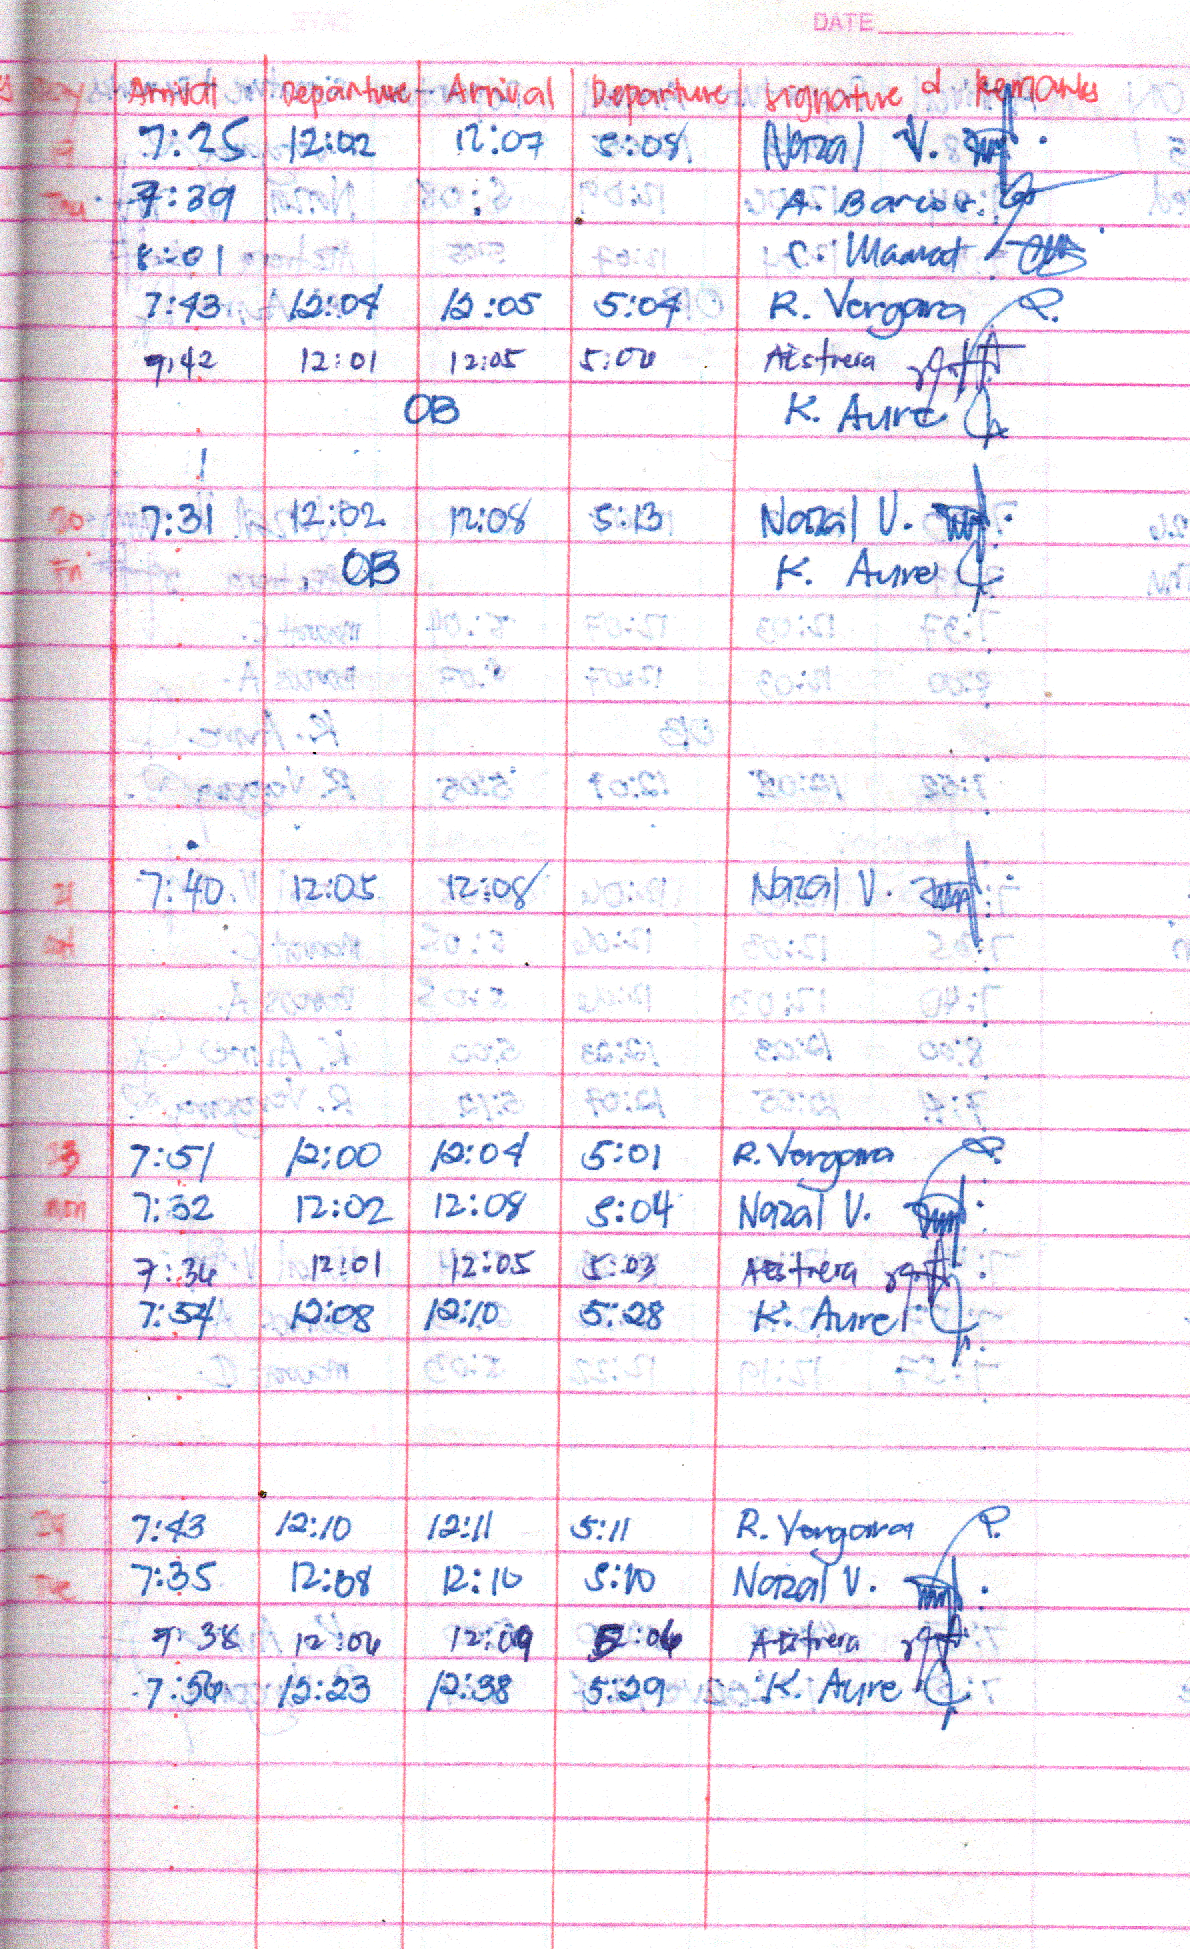 DATE
Arrival Departure Arrival Departure Signature & Remarks
7:25 12:02 12:07 5:08 Nazal V.
Thu 7:39 A. Barcos
8:01 C. Manat
7:43 12:04 12:05 5:04 R. Vergara
7:42 12:01 12:05 5:00 AEstrera
OB K. Aure
20 7:31 12:02 12:08 5:13 Nazal V.
Fri OB K. Aure
21 7:40 12:05 12:08 Nazal V.
Sat
23 7:51 12:00 12:04 5:01 R. Vergara
Mon 7:32 12:02 12:08 5:04 Nazal V.
7:36 12:01 12:05 5:03 AEstrera
7:54 12:08 12:10 5:28 K. Aure
7:43 12:10 12:11 5:11 R. Vergara
Tue 7:35 12:08 12:10 5:10 Nazal V.
7:38 12:06 12:09 5:06 AEstrera
7:56 12:23 12:38 5:29 K. Aure